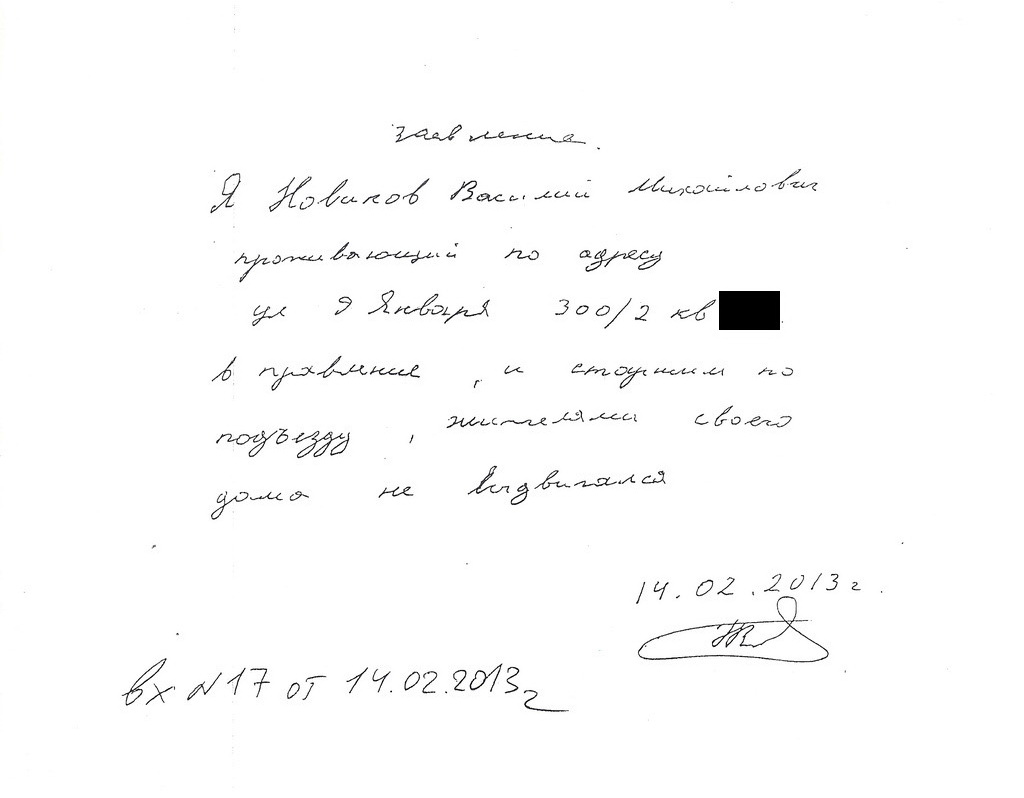 заявление.
Я Новиков Василий Михайлович
проживающий по адресу
ул 9 Января 300/2 кв
в правление , и старшим по
подъезду , жителями своего
дома не выдвигался
14.02.2013г.
вх N17 от 14.02.2013г